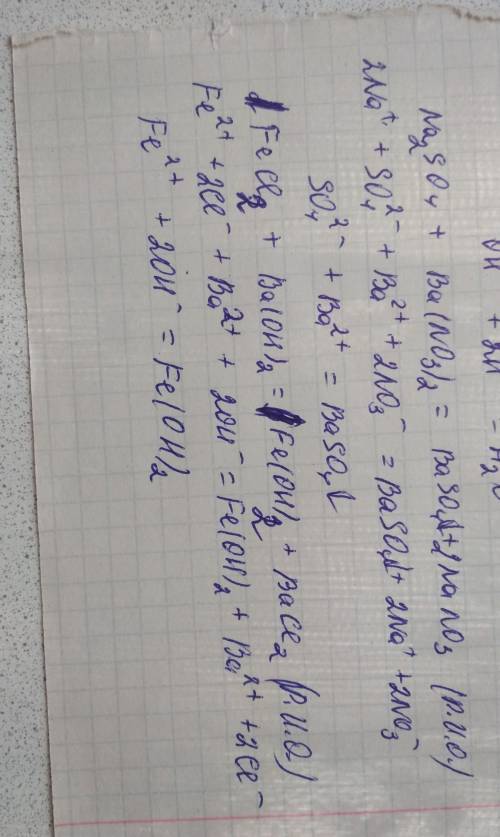 Na₂SO₄ + Ba(NO₃)₂ = BaSO₄↓ + 2NaNO₃ (р.и.о.)
2Na⁺ + SO₄²⁻ + Ba²⁺ + 2NO₃⁻ = BaSO₄↓ + 2Na⁺ + 2NO₃⁻
SO₄²⁻ + Ba²⁺ = BaSO₄↓
FeCl₂ + Ba(OH)₂ = Fe(OH)₂ + BaCl₂ (р.и.о.)
Fe²⁺ + 2Cl⁻ + Ba²⁺ + 2OH⁻ = Fe(OH)₂ + Ba²⁺ + 2Cl⁻
Fe²⁺ + 2OH⁻ = Fe(OH)₂